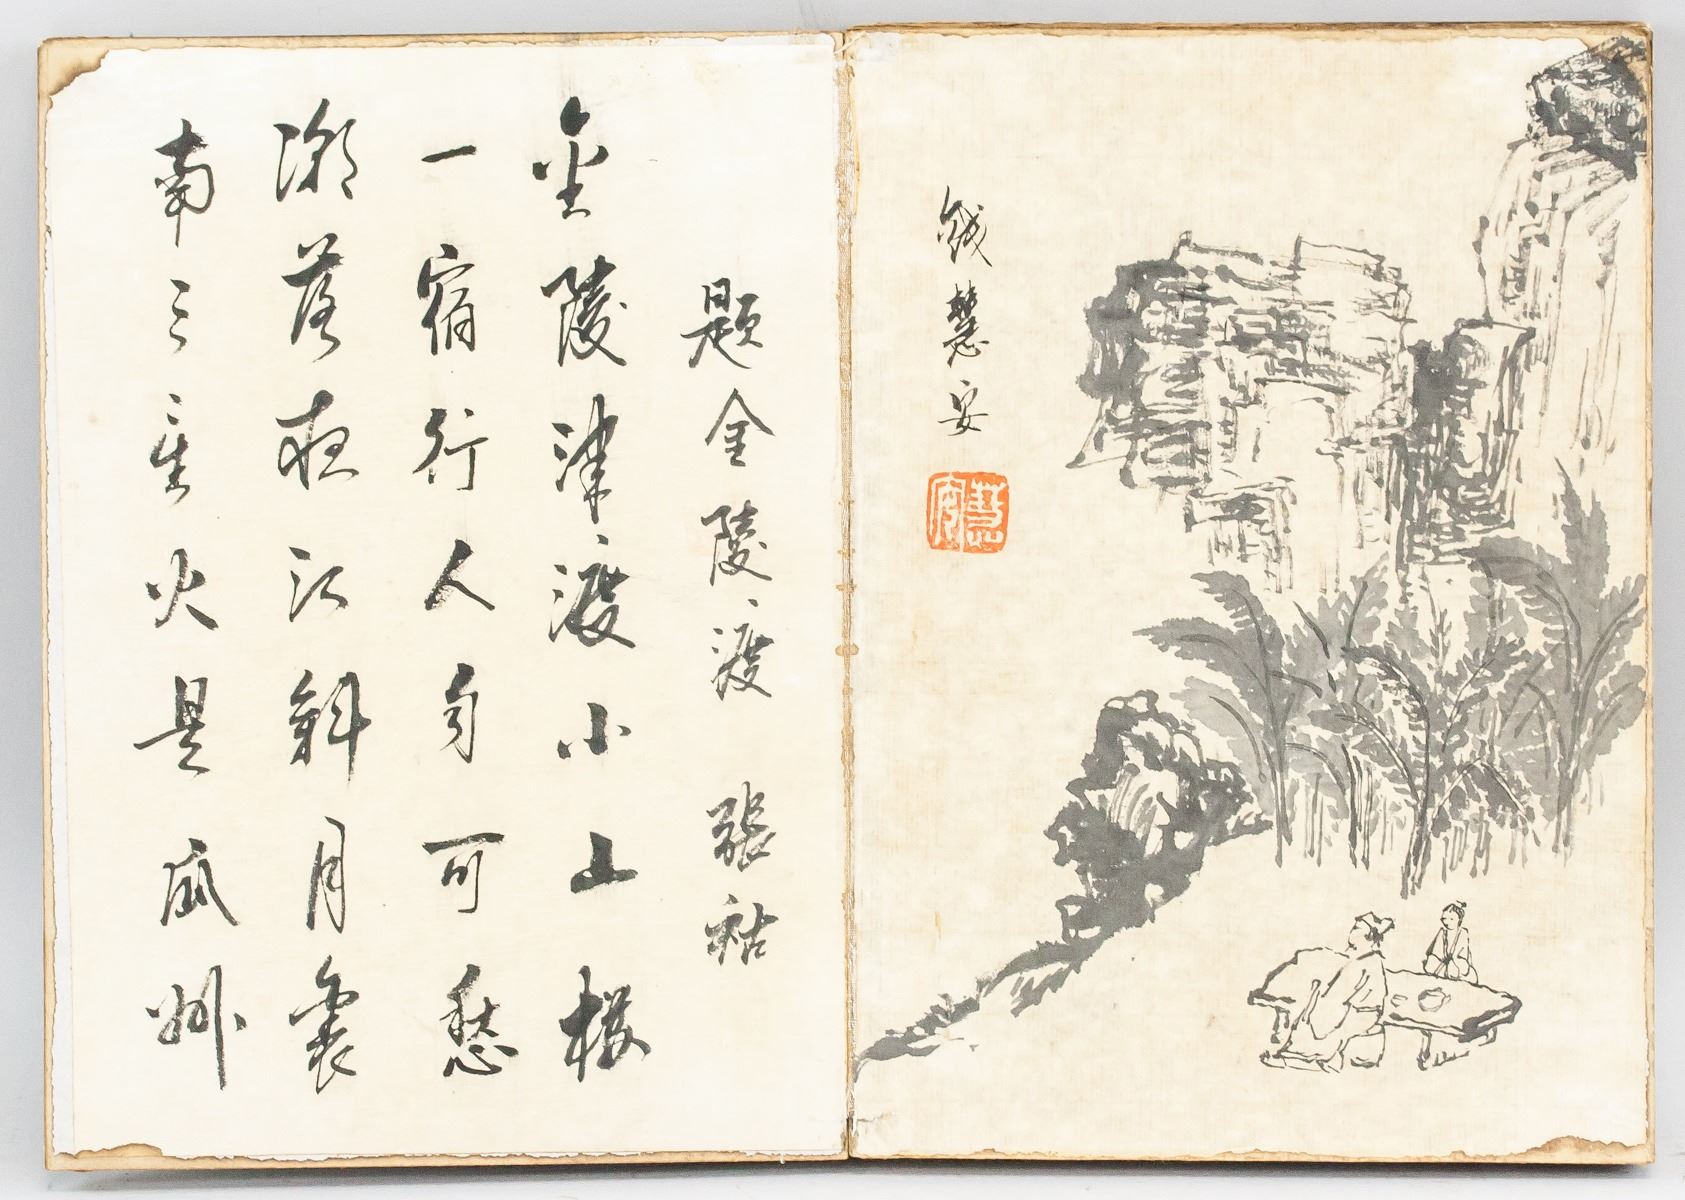 錢慧安
慧安
題金陵渡 張祜
金陵津渡小山樓
一宿行人自可愁
潮落夜江斜月裏
南三星火是瓜州